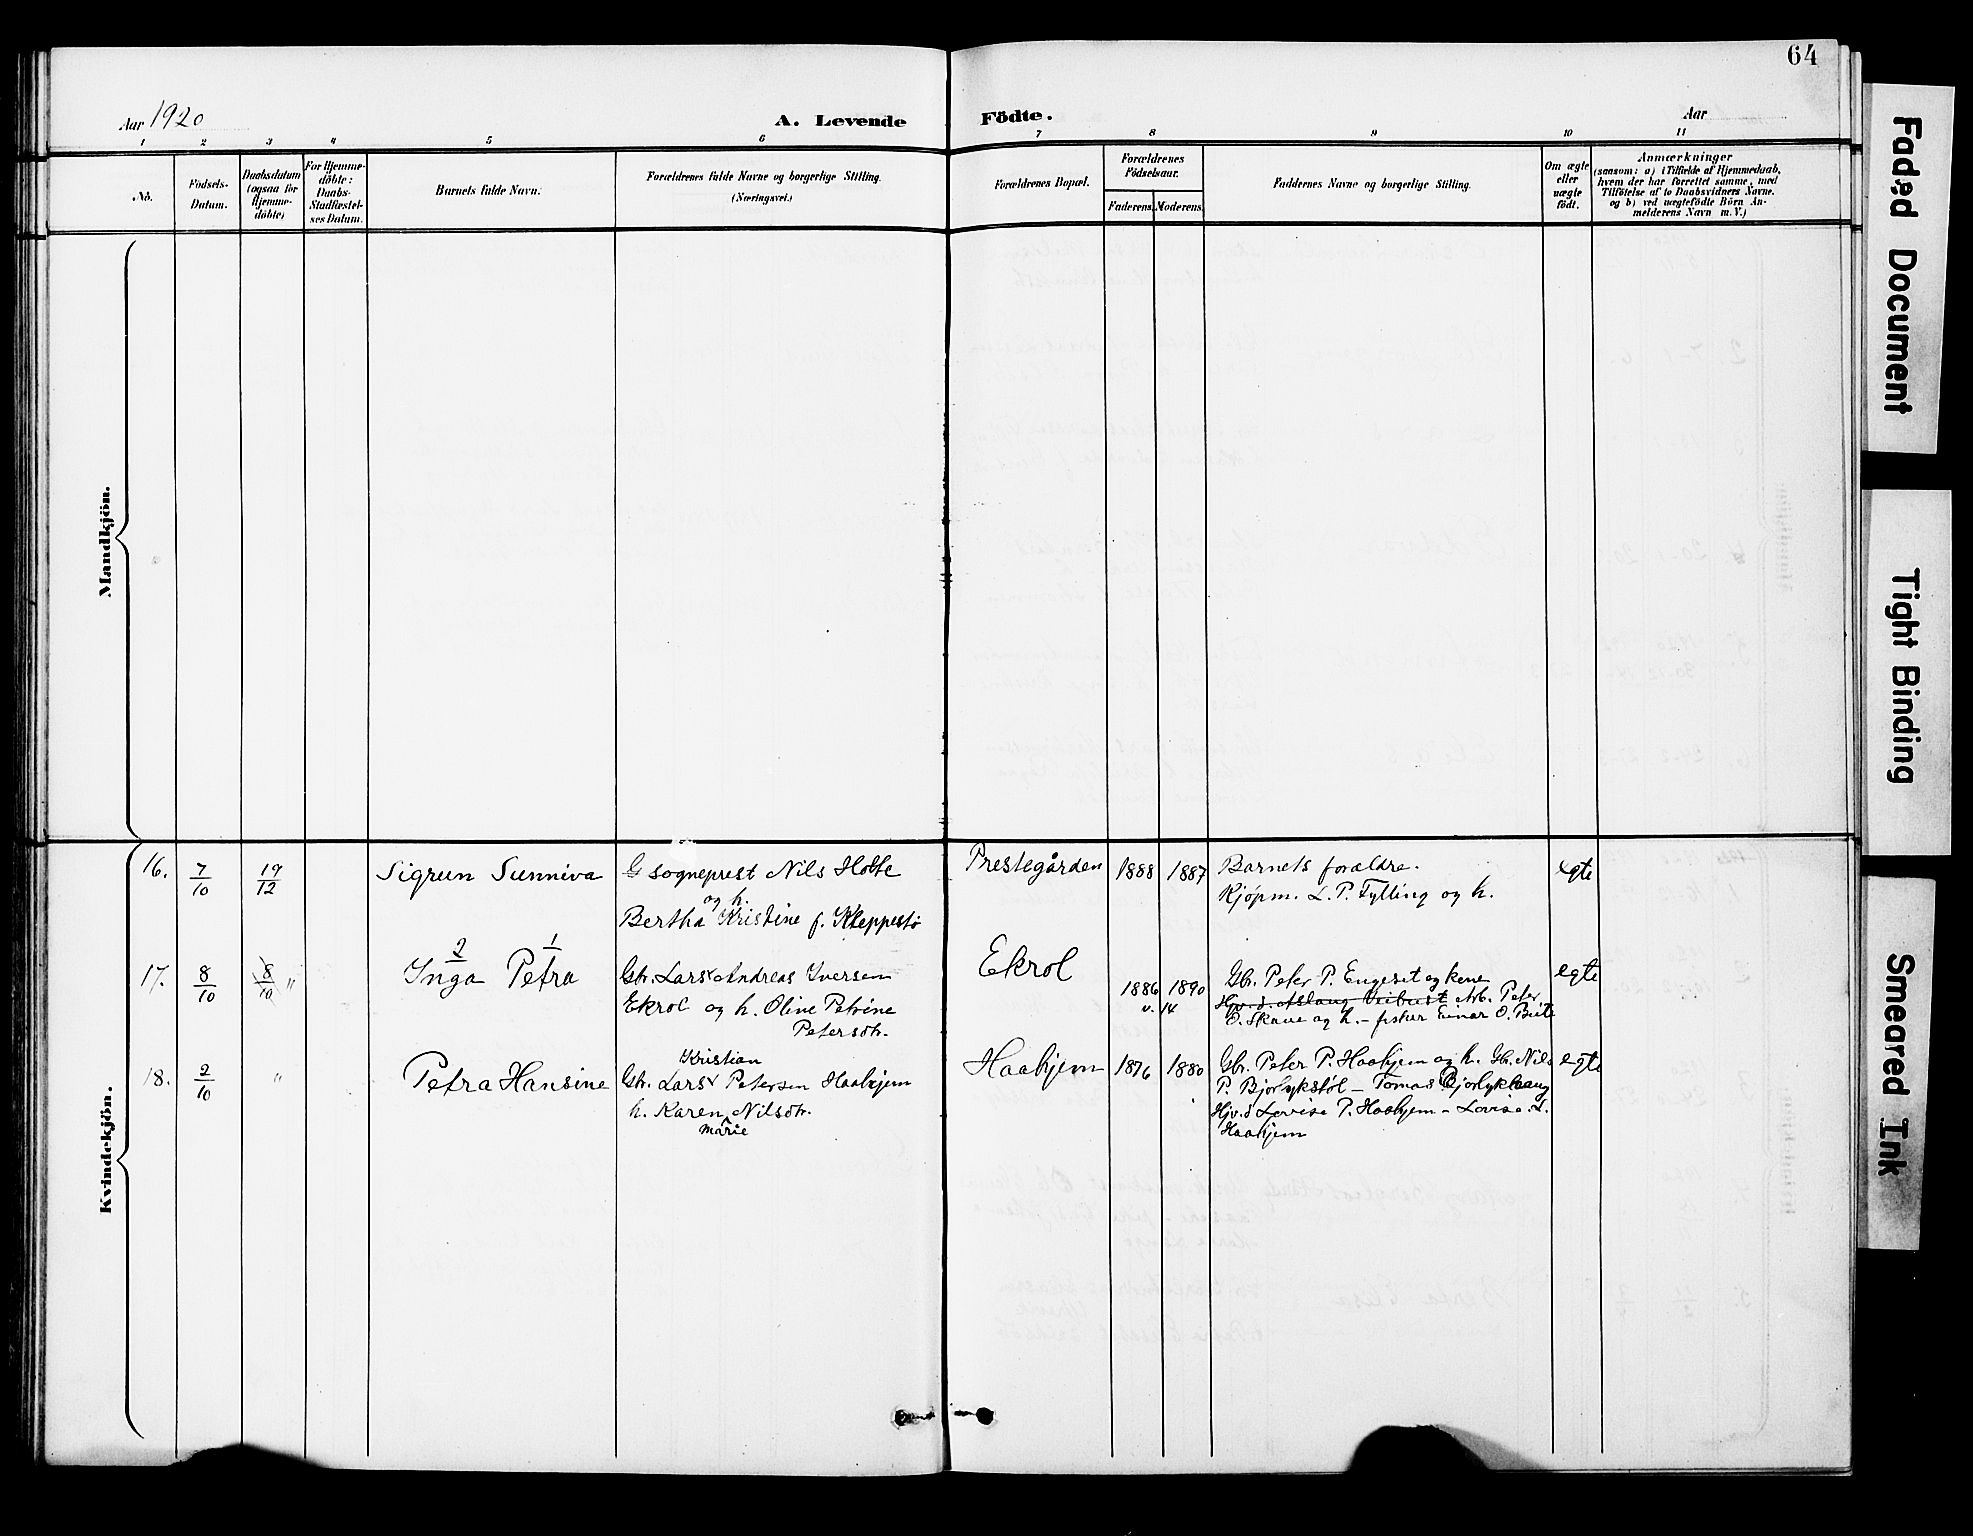 64
Aar 1920
A. Levende
Födte.
Aar
1 2 3 4 5 6 7 8 9 10 11
No.
Födsels-
Datum.
Daabsdatum
(ogsaa for
Hjemme-
döbte)
For Hjemme-
döbte:
Daabs-
Stadfæstel-
ses Datum.
Barnets fulde Navn.
Forældrenes fulde Navne og borgerlige Stilling.
(Næringsvei.)
Forældrenes Bopæl.
Forældrenes
Födselsaar.
Faderens.
Moderens.
Faddernes Navne og borgerlige Stilling.
Om ægte
eller
uægte
födt.
Anmærkninger
(saasom: a) i Tilfælde af Hjemmedaab,
hvem der har forrettet samme, med
Tilföielse af to Daabsvidners Navne.
og b) ved uægtefödte Börn An-
melderens Navn m. V.)
Mandkjön.
Kvindekjön.
16.
7/10
19/12
Sigrun Sunniva
G sogneprest Nils Holte
og h.
Bertha Kristine f. Kleppestö
Prestegården
1888
1887
Barnets forældre.
Kjöpm. L. P. Fylling og h.
egte
17.
8/10
8/10 "
2 1
Inga Petra
Gbr. Lars Andreas Iversen
Ekrol og h. Oline Petrine
Petersdtr.
Ekrol
1886
1890
v. 14
Gbr. Peter P. Engeset og kone
Arb. Peter
O. Skaue og h. – fisker Einar O.
egte
18.
2/10
"
Petra Hansine
Kristian
Gbr. Lars Petersen Haahjem
h. Karen Nilsdtr.
Marie
Haahjem
1876
1880
Gbr. Peter P. Haahjem og h. Gb. Nils
P. Bjorlykstöl – Tomas Bjorlykhaug
Hjv. d Lovise P. Haahjem – Lovise L.
Haahjem
egte
Faded Document
Tight Binding
Smeared Ink